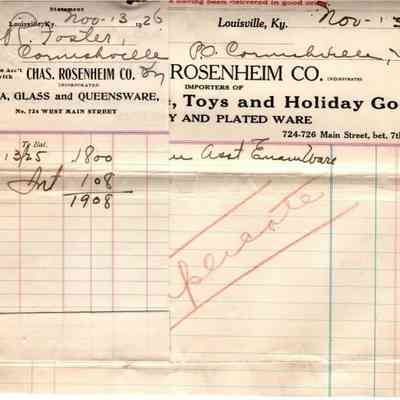 Statement
Louisville, Ky. Nov-13 1926
Foster,
Cornishville
Ky
in Ac't
with CHAS. ROSENHEIM CO.
(INCORPORATED)
A, GLASS and QUEENSWARE,
No. 724 WEST MAIN STREET
To Bal.
13/25 1800
Int 108
1908
having been delivered in good
Louisville, Ky. Nov-13
P.O. Cornishville,
ROSENHEIM CO. (INCORPORATED)
IMPORTERS OF
, Toys and Holiday Go
Y AND PLATED WARE
724-726 Main Street, bet. 7th
Asst EnamWare